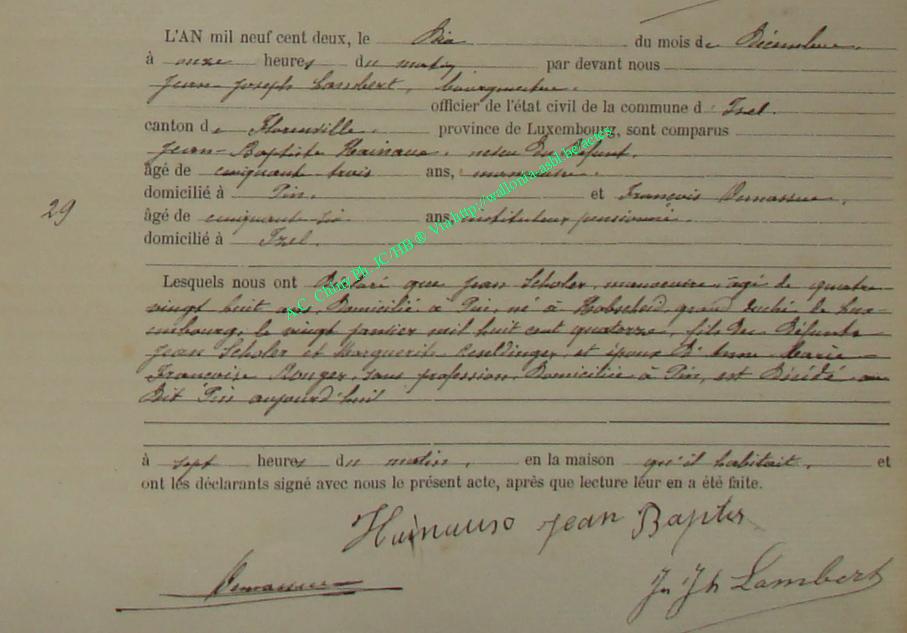 L'AN mil neuf cent deux, le Dix du mois de Décembre.
à onze heures du matin par devant nous
Jean-Joseph Lambert, bourgmestre.
officier de l'état civil de la commune d'Izel.
canton de Florenville. province de Luxembourg, sont comparus
Jean-Baptiste Hainaux, neveu du défunt.
âgé de cinquante trois ans, manœuvre.
domicilié à Pin. et François Demasseur,
29
âgé de cinquante six ans, instituteur pensionné.
domicilié à Izel.
Lesquels nous ont Déclaré que Jean Scholer, manoeuvre, âgé de quatre
vingt huit ans, Domicilié à Pin, né à Hobscheid, grand duché de Lux
embourg, le vingt janvier mil huit cent quatorze, fils des Défunts
Jean Scholer et Marguerite, et époux D'Anne Marie
Françoise Rouger, sans profession, Domiciliée à Pin, est Décédé au
Dit Pin aujourd'hui
à sept heures du matin, en la maison qu'il habitait, et
ont les déclarants signé avec nous le présent acte, après que lecture leur en a été faite.
Hainauxo Jean Baptis
Jn Jh Lambert
A.C. Chiny Ph. JC/HB ® Via http://wallonia-asbl.be/actes